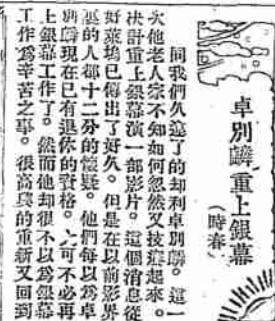 卓別麟重上銀幕
（時春）
同我們久違了的却利卓別麟。這一
次他老人家不知如何忽然又技癢起來。
決計重上銀幕演一部影片。這個消息從
好萊塢已傳出了好久。但是在以前影界
裏的人都十二分的懷疑。他們每以爲卓
別麟現在已有退休的資格。大可不必再
上銀幕工作了。然而他却很不以爲銀幕
工作爲辛苦之事。很高興的重新又回到